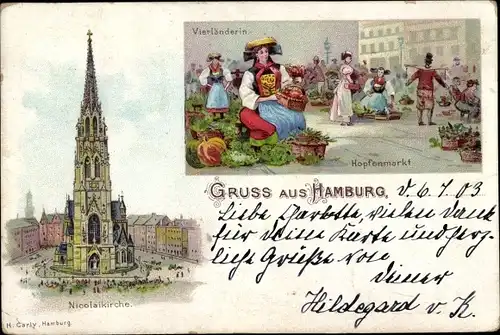 Vierländerin.
Hopfenmarkt
GRUSS AUS HAMBURG, d. 6.7.03
Liebe Charlotte, vielen Dank
für deine Karte und herz-
liche Grüße von
Deiner
Hildegard v. K.
Nicolaikirche.
H. Carly, Hamburg.